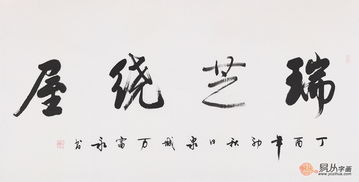 瑞芝绕屋
丁酉年初秋日泉城万富永书
易从字画